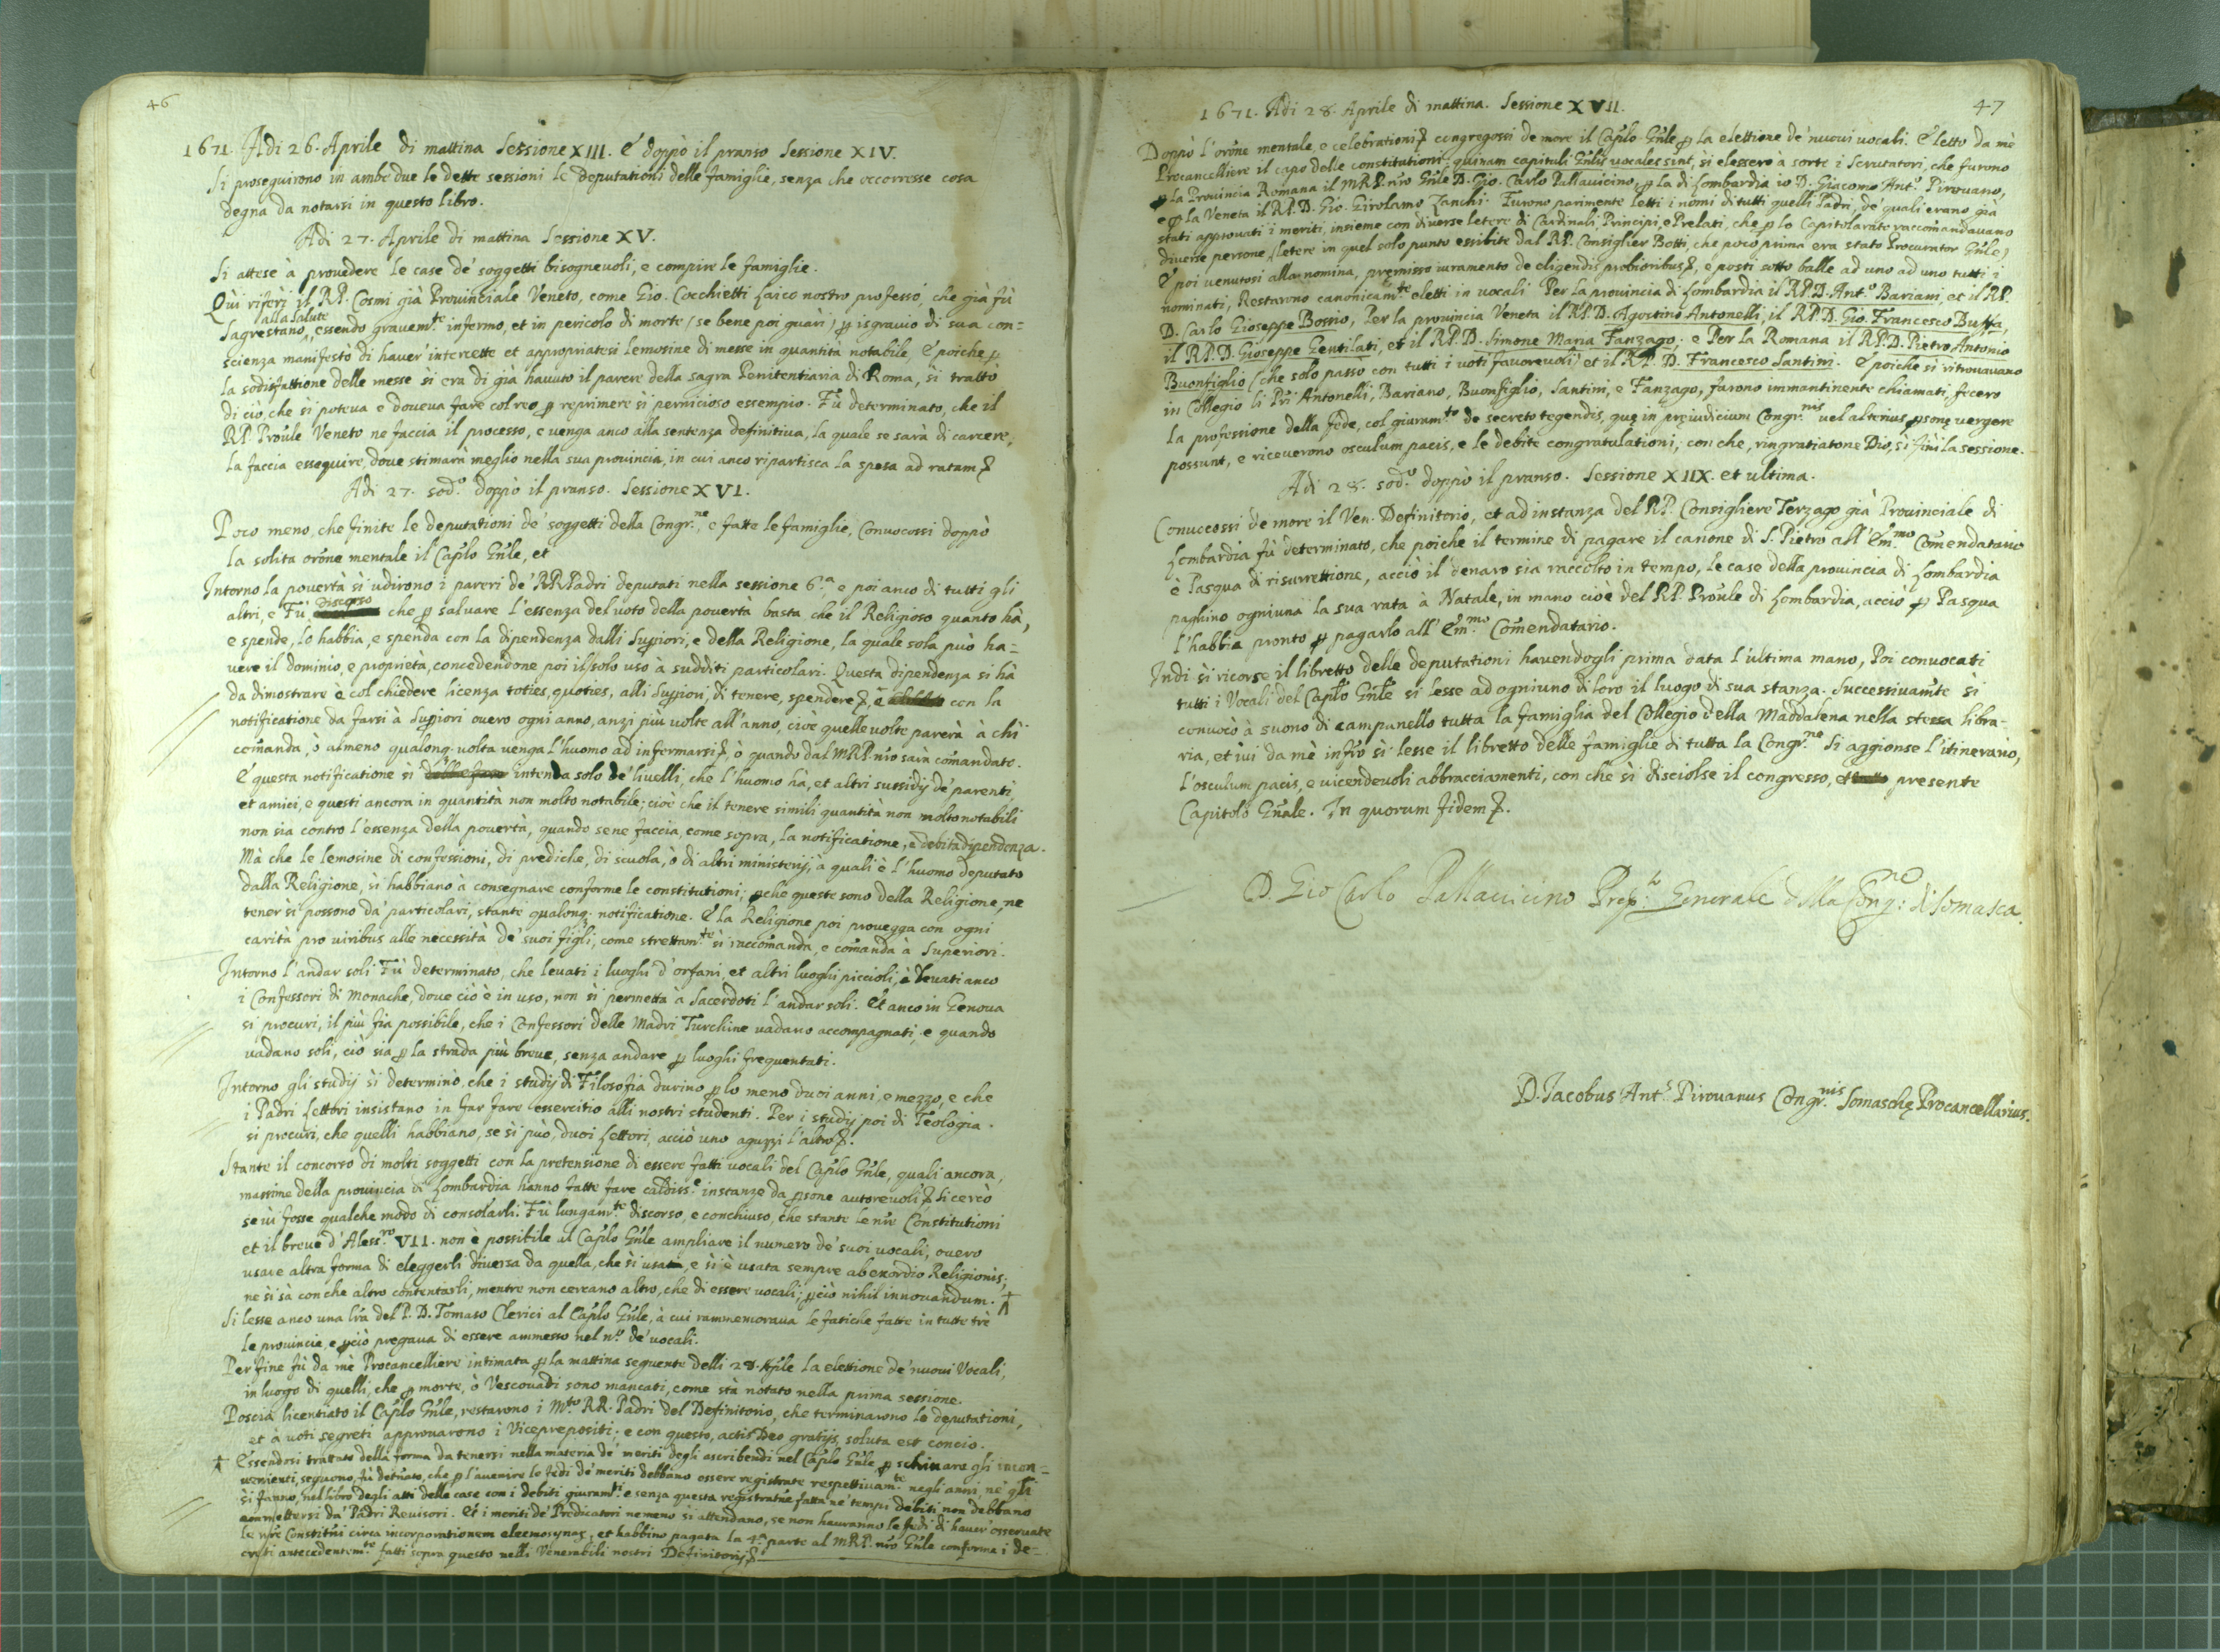 46
1671. Adi 26. Aprile di mattina Sessione XIII. E doppò il pranso Sessione XIV.
Si proseguirono in ambe due le dette sessioni le deputationi delle famiglie, senza che occorresse cosa
degna da notarsi in questo libro.
Adi 27. Aprile di mattina Sessione XV.
Si attese à provedere le case de' soggetti bisognevoli, e compire le famiglie.
Qùi riferì il RP. Cosmi già Provinciale Veneto, come Gio. Cocchietti Laico nostro professo, che già fù
alla Salute
Sagrestano, essendo gravem.te infermo, et in pericolo di morte (se bene poi guarì) ꝑ isgravio di sua con=
scienza manifestò di haver' intercette et appropriatesi lemosine di messe in quantità notabile. E poiche ꝑ
la sodisfattione delle messe si era di già havuto il parere della sagra Penitentiaria di Roma, si trattò
di ciò, che si poteva e doveva fare col reo ꝑ reprimere sì pernicioso essempio. Fù determinato, che il
RP. Prou̅le Veneto ne faccia il processo, e venga anco alla sentenza definitiva, la quale se sarà di carcere,
la faccia esseguire, dove stimarà meglio nella sua provincia, in cui anco ripartisca la spesa ad ratam &
Adi 27. sod.o doppò il pranso. Sessione XVI.
Poco meno, che finite le deputationi de' soggetti della Congr.ne, e fatte le famiglie, Convocossi doppò
la solita oro̅ne mentale il Cap̅lo Gn̅le, et
Intorno la povertà si udirono i pareri de' RR. Padri deputati nella sessione 6.a e poi anco di tutti gli
altri, e Fù discorso che ꝑ salvare l'essenza del voto della povertà basta che il Religioso quanto hà,
e spende, lo habbia, e spenda con la dipendenza dalli Suꝑiori, e della Religione, la quale sola può ha=
vere il dominio, e proprietà, concedendone poi il solo uso à sudditi particolari. Questa dipendenza si hà
da dimostrare è col chiedere licenza toties, quoties, alli Suꝑiori, di tenere, spendere &, ò con la
notificatione da farsi à Suꝑiori overo ogni anno, anzi più volte all'anno, cioè quelle volte parerà à chì
com̅anda, ò almeno qualonq. volta venga l'huomo ad infermarsi &, ò quando dal MRP. nr̅o sarà com̅andato.
E questa notificatione si intenda solo de' livelli, che l'huomo hà, et altri sussidij de' parenti
et amici, e questi ancora in quantità non molto notabile; cioè che il tenere simili quantità non molto notabili
non sia contro l'essenza della povertà, quando sene faccia, come sopra, la notificatione, e debita dipendenza.
Mà che le lemosine di confessioni, di prediche, di scuola, ò di altri ministerij, à quali è l'huomo deputato
dalla Religione, si habbiano à consegnare conforme le constitutioni; ꝑche queste sono della Religione, ne
tener si possono da' particolari, stante qualonq. notificatione. E la Religione poi provegga con ogni
carità pro viribus alle necessità de' suoi figli, come strettam.te si raccomanda, e com̅anda à Superiori.
Intorno l'andar soli Fù determinato, che levati i luoghi d'orfani, et altri luoghi piccioli, è levati anco
i Confessori di Monache, dove ciò è in uso, non si permetta à Sacerdoti l'andar soli. Et anco in Genova
si procuri, il più fia possibile, che i Confessori delle Madri Turchine vadano accompagnati, e quando
vadano soli, ciò sia ꝑ la strada più breve, senza andare ꝑ luoghi frequentati.
Intorno gli studij si determinò, che i studij di Filosofia durino ꝑ lo meno duoi anni, e mezzo, e che
i Padri Lettori insistano in far fare essercitio alli nostri studenti. Per i studij poi di Teologia
si procuri, che quelli habbiano, se si può, duoi Lettori, acciò uno aguzzi l'altro &.
Stante il concorso di molti soggetti con la pretensione di essere fatti vocali del Cap̅lo Gn̅le, quali ancora,
massime della provincia di Lombardia hanno fatte fare caldiss.e instanze da ꝑsone autorevoli & si cercò
se ùi fosse qualche modo di consolarli. Fù lungam.te discorso, e conchiuso, che stante le nr̅e Constitutioni
et il breve d'Aless.ro VII. non è possibile al Cap̅lo Gn̅le ampliare il numero de' suoi vocali, overo
usare altra forma di eleggerli diversa da quella, che si usa, e si è usata sempre ab exordio Religionis;
ne si sà con che altro contentarli, mentre non cercano altro, che di essere vocali; ꝑciò nihil innovandum. ☨
Si lesse anco una lr̅a del P. D. Tomaso Clerici al Cap̅lo Gn̅le, à cui rammemorava le fatiche fatte in tutte trè
le provincie, e ꝑciò pregava di essere ammesso nel n.o de' vocali.
Per fine fù da mè Procancelliere intimata ꝑ la mattina seguente delli 28. Ap̅le la elettione de' nuovi Vocali,
in luogo di quelli, che ꝑ morte, ò Vescovadi sono mancati, come stà notato nella prima sessione.
Poscia licentiato il Cap̅lo Gn̅le, restarono i M.to RR. Padri del Definitorio, che terminarono le deputationi,
et à voti segreti approvarono i Viceprepositi; e con questo, actis Deo gratijs, soluta est concio.
☨ Essendosi trattato della forma da tenersi nella materia de' meriti degli ascribendi nel Cap̅lo Gn̅le ꝑ schivare gli incon=
venienti, seguono, fù det̅nato, che ꝑ l'avenire le fedi de' meriti debbano essere registrate respettivam.te negli anni, ne' q̅li
si fanno, nel libro degli atti delle case con i debiti giuram.ti e senza questa registrat̅ne fatta ne' tempi debiti non debbano
ammettersi da' Padri Revisori. Et i meriti de' Predicatori nemeno si attendano, se non havranno le fedi di haver' osservate
le nr̅e Constit̅ni circa incorporationem eleemosynaꝝ, et habbino pagata la 4.a parte al MRP. nr̅o Gn̅le conforme i de=
creti antecedentem.te fatti sopra questo nelli Venerabili nostri Definitorij &
47
1671. Adi 28. Aprile di mattina. Sessione XVII.
Doppò l'oro̅ne mentale, e celebrationi & congregossi de more il Cap̅lo Gn̅le ꝑ la elettione de' nuovi vocali. E letto da mè
Procancelliere il capo delle constitutioni: quinam capituli Gn̅lis vocales sint, si elessero à sorte i Scrutatori, che furono
ꝑ la Provincia Romana il MRP. nr̅o Gn̅le D. Gio. Carlo Pallavicino, ꝑ la di Lombardia io D. Giacomo Ant.o Pirovano,
e ꝑ la Veneta il RP. D. Gio. Girolamo Zanchi. Furono parimente letti i nomi di tutti quelli Padri, de' quali erano già
stati approvati i meriti, insieme con diverse letere di Cardinali, Principi, e Prelati, che ꝑ lo Capitolarato raccomandavano
diverse persone, (letere in quel solo punto essibite dal RP. Consiglier Botti, che poco prima era stato Procurator Gn̅le)
E poi venutosi alla nomina, premisso iuramento de eligendis probioribus &, e posti sotto balle ad uno ad uno tutti i
nominati, Restarono canonicam.te eletti in vocali Per la provincia di Lombardia il RP. D. Ant.o Bariani, et il RP.
D. Carlo Gioseppe Bossio, Per la provincia Veneta il RP. D. Agostino Antonelli, il RP. D. Gio. Francesco Buffa,
il RP. D. Gioseppe Gentilati, et il RP. D. Simone Maria Fanzago; e Per la Romana il RP. D. Pietro Antonio
Buonfiglio (che solo passò con tutti i voti favorevoli) et il RP. D. Francesco Santini. E poiche si ritrovavano
in Collegio li Pr̅i Antonelli, Bariano, Buonfiglio, Santini, e Fanzago, furono immantinente chiamati, fecero
la professione della fede, col giuram.to de secreto tegendis, quę in pręiudicium Congr.nis vel alterius ꝑsonę vergere
possunt, e riceverono osculum pacis, e le debite congratulationi; con che, ringratiatone Dio, si finì la sessione.
Adi 28. sod.o doppò il pranso. Sessione XIIX. et ultima.
Convocossi de more il Ven. Definitorio, et ad instanza del RP. Consigliere Terzago già Provinciale di
Lombardia fù determinato, che poiche il termine di pagare il canone di S. Pietro all'Em̅.mo Com̅endatario
è Pasqua di risurrettione, acciò il denaro sia raccolto in tempo, le case della provincia di Lombardia
paghino ogniuna la sua rata à Natale, in mano cioè del RP. Prou̅le di Lombardia, acciò ꝑ Pasqua
l'habbia pronto ꝑ pagarlo all'Em̅.mo Com̅endatario.
Indi si ricorse il libretto delle deputationi havendogli prima data l'ultima mano, Poi convocati
tutti i Vocali del Cap̅lo Gn̅le si lesse ad ogniuno di loro il luogo di sua stanza. Successivam̅te si
convocò à suono di campanello tutta la famiglia del Collegio della Maddalena nella stessa libra=
ria, et ivi da mè infr̅o si lesse il libretto delle famiglie di tutta la Congr.ne Si aggionse l'itinerario,
l'osculum pacis, e vicendevoli abbracciamenti, con che si disciolse il congresso, presente
Capitolo Gn̅ale. In quorum fidem &.
D. Gio Carlo Pallavicino Prep.to Generale della Cong.ne di Somasca.
D. Iacobus Ant.s Pirovanus Congr.nis Somaschę Procancellarius.